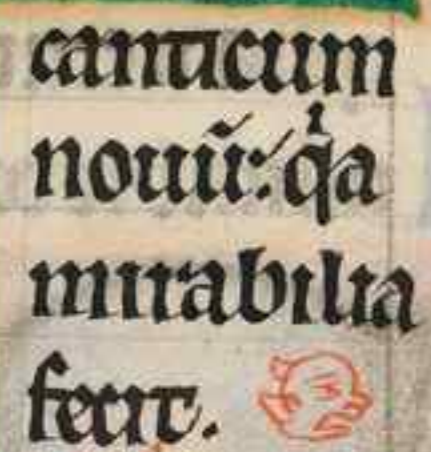 canticum
nouū: qⁱa
mirabilia
fecit.